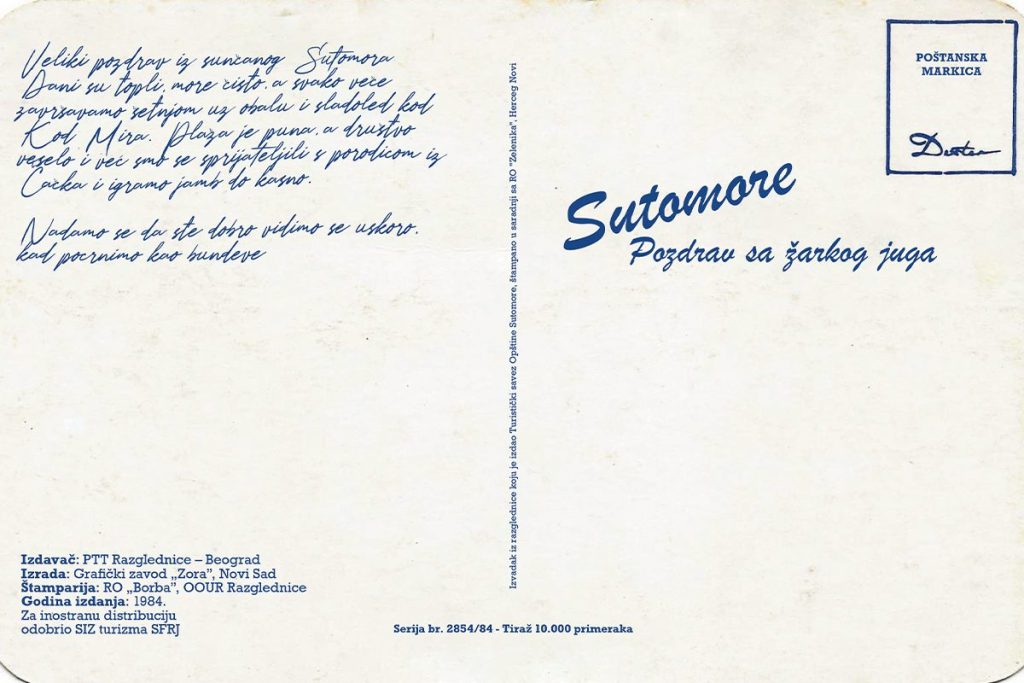 Veliki pozdrav iz sunčanog Sutomora
Dani su topli, more čisto, a svako veče
završavamo šetnjom uz obalu i sladoled kod
Kod Mira. Plaža je puna, a društvo
veselo i već smo se sprijateljili s porodicom iz
Čačka i igramo jamb do kasno.
Nadamo se da ste dobro vidimo se uskoro,
kad pocrnimo kao bundeve
Izdavač: PTT Razglednice – Beograd
Izrada: Grafički zavod „Zora”, Novi Sad
Štamparija: RO „Borba”, OOUR Razglednice
Godina izdanja: 1984.
Za inostranu distribuciju
odobrio SIZ turizma SFRJ
Izvadak iz razglednice koju je izdao Turistički savez Opštine Sutomore, štampano u saradnji sa RO "Zelenika", Herceg Novi
Serija br. 2854/84 - Tiraž 10.000 primeraka
POŠTANSKA
MARKICA
Sutomore
Pozdrav sa žarkog juga